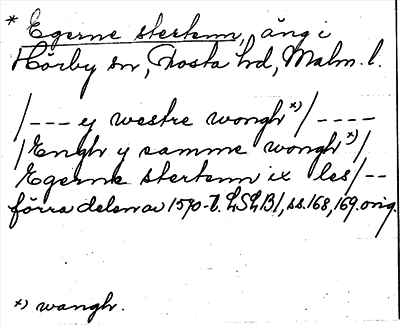 * Egerne stertenn, äng i
Hörby sn, Frosta hd, Malm. l.
/--- y westre wongh *)/----
/Engh y samme wongh *)/
Egerne stertenn ix les/--
förra delen av 1590-t. LSLB1, ss. 168, 169. orig.
*) wangh.